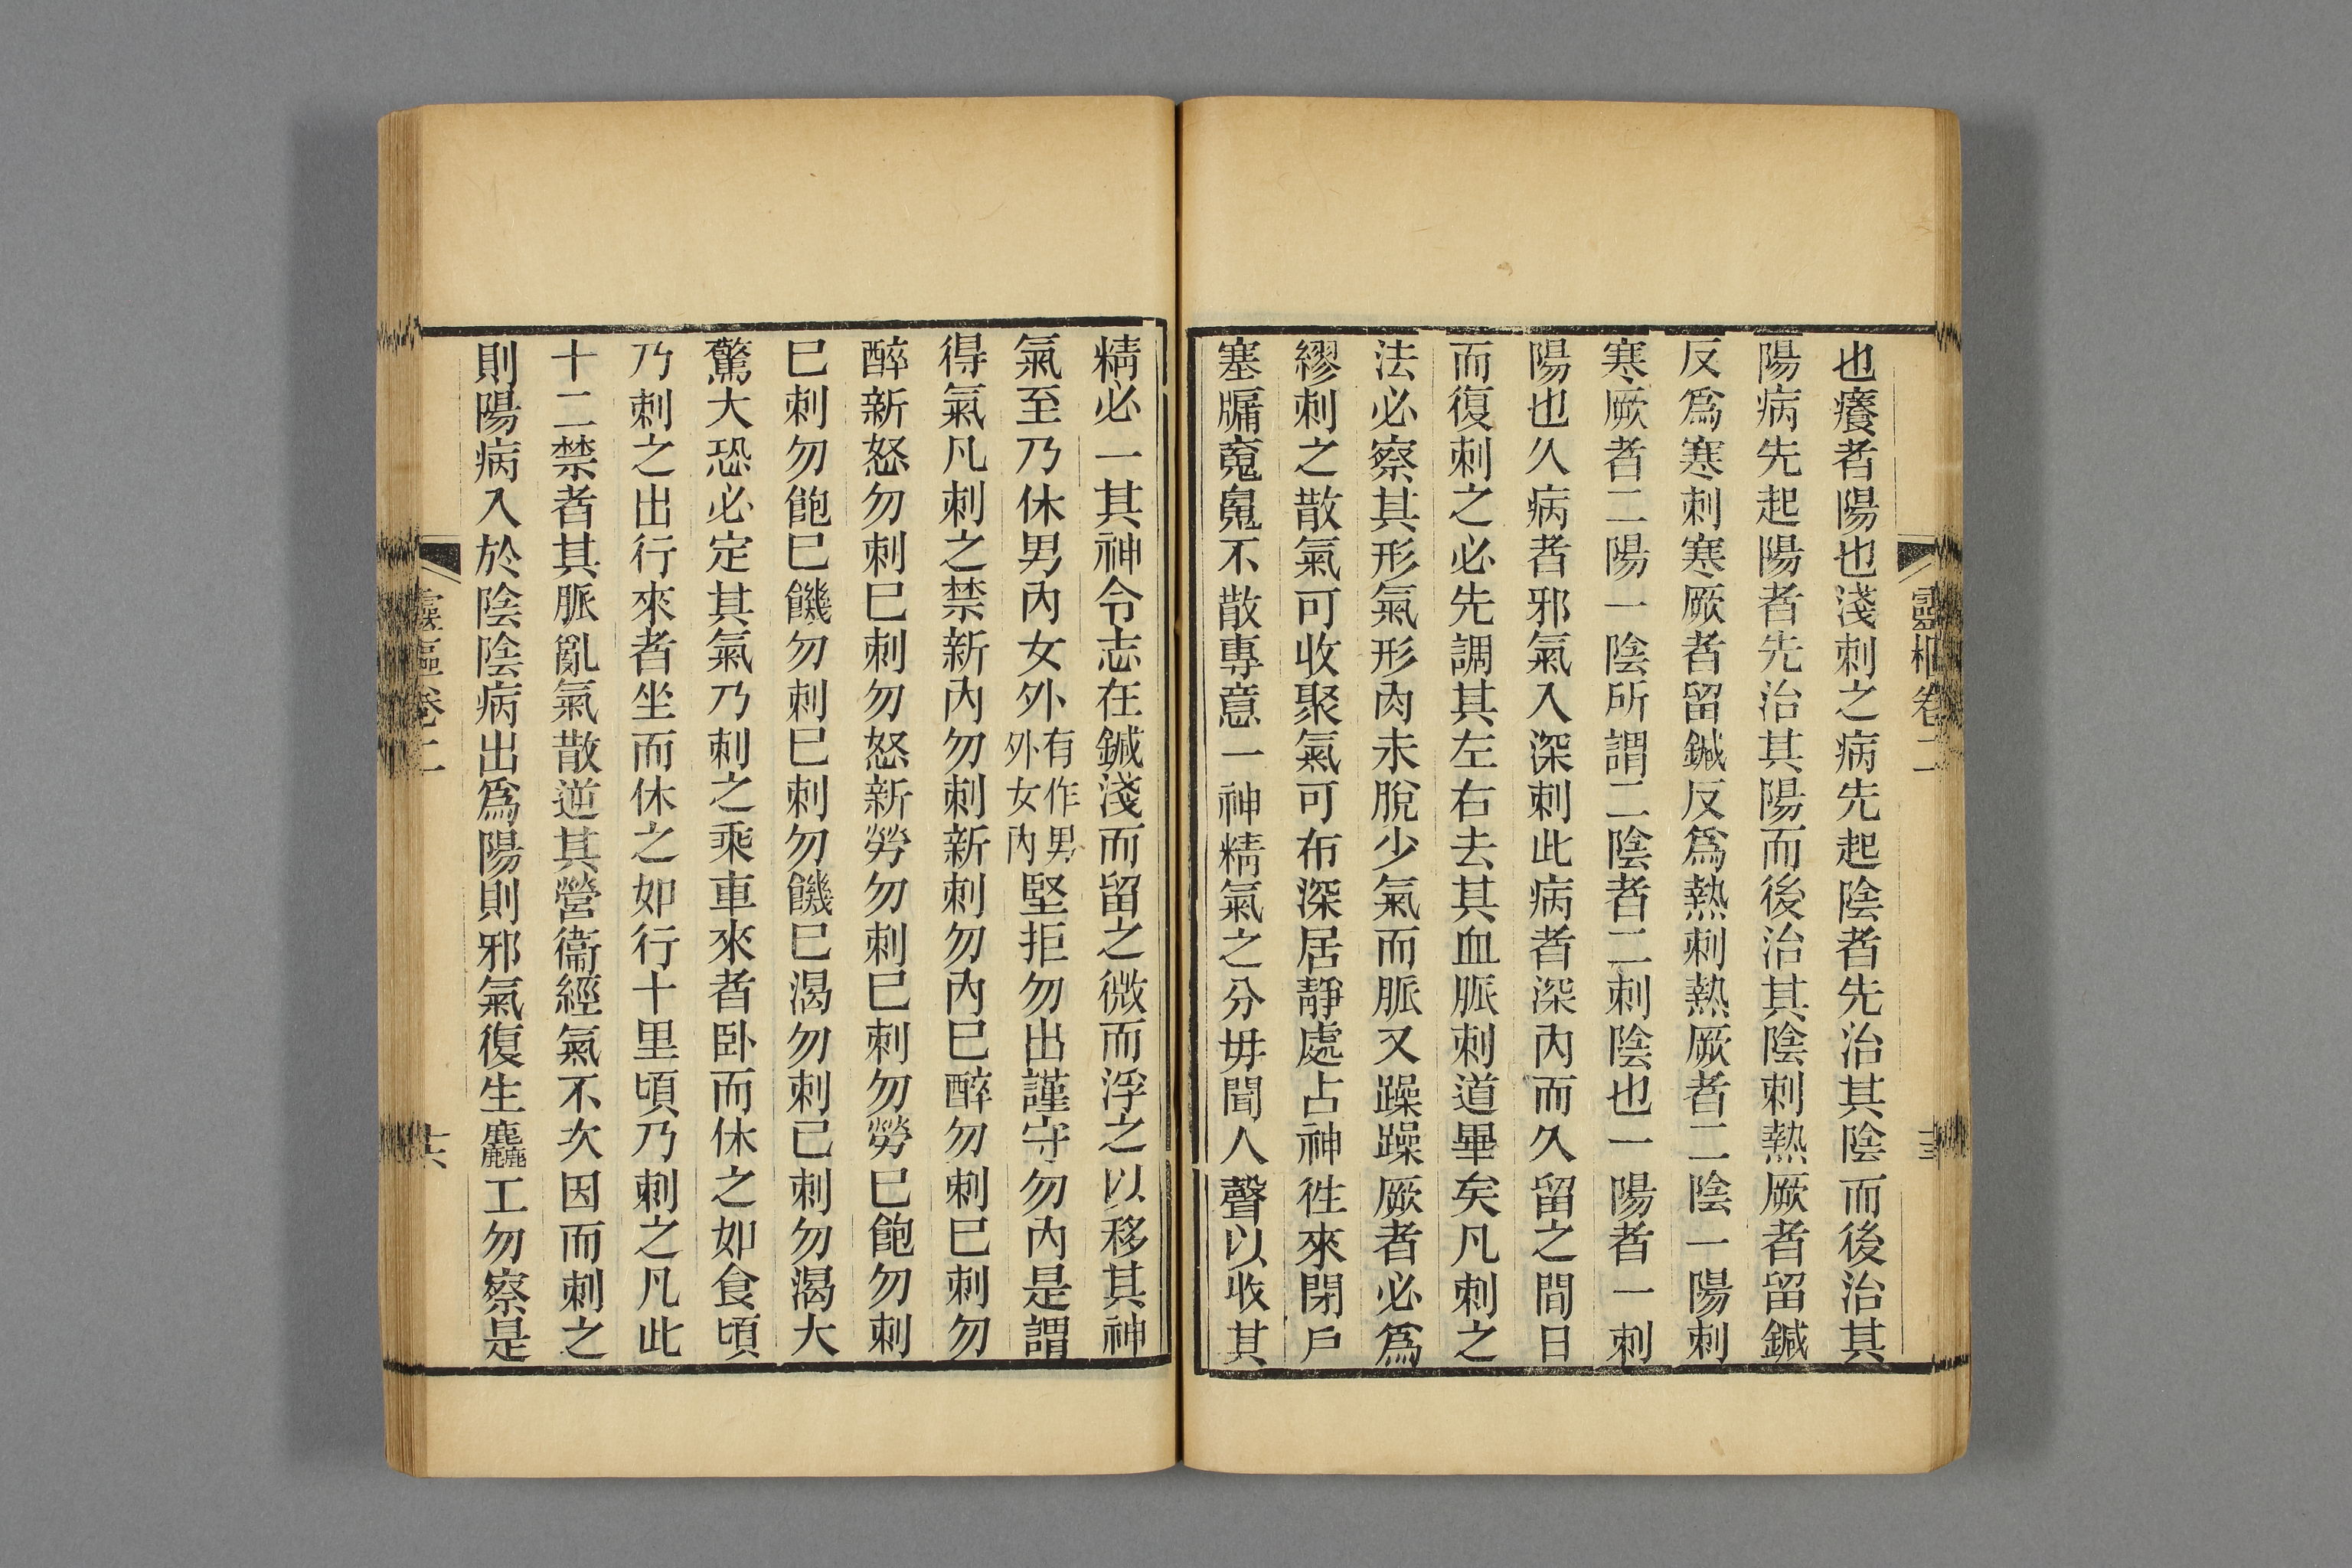 靈樞卷二
也癢者陽也淺刺之病先起陰者先治其陰而後治其
陽病先起陽者先治其陽而後治其陰刺熱厥者留鍼
反爲寒刺寒厥者留鍼反爲熱刺熱厥者二陰一陽刺
寒厥者二陽一陰所謂二陰者二刺陰也一陽者一刺
陽也久病者邪氣入深刺此病者深內而久留之間日
而復刺之必先調其左右去其血脈刺道畢矣凡刺之
法必察其形氣形肉未脫少氣而脈又躁躁厥者必爲
繆刺之散氣可收聚氣可布深居靜處占神徃來閉戶
塞牖䰟䰟不散專意一神精氣之分毋聞人聲以收其
精必一其神令志在鍼淺而留之微而浮之以移其神
氣至乃休男內女外有作男外女內堅拒勿出謹守勿內是謂
得氣凡刺之禁新內勿刺新刺勿內巳醉勿刺巳刺勿
醉新怒勿刺巳刺勿怒新勞勿刺巳刺勿勞巳飽勿刺
巳刺勿飽巳饑勿刺巳刺勿饑巳渴勿刺己刺勿渴大
驚大恐必定其氣乃刺之乘車來者臥而休之如食頃
乃刺之出行來者坐而休之如行十里頃乃刺之凡此
十二禁者其脈亂氣散逆其營衞經氣不次因而刺之
則陽病入於陰陰病出爲陽則邪氣復生麤工勿察是
靈樞卷二
六